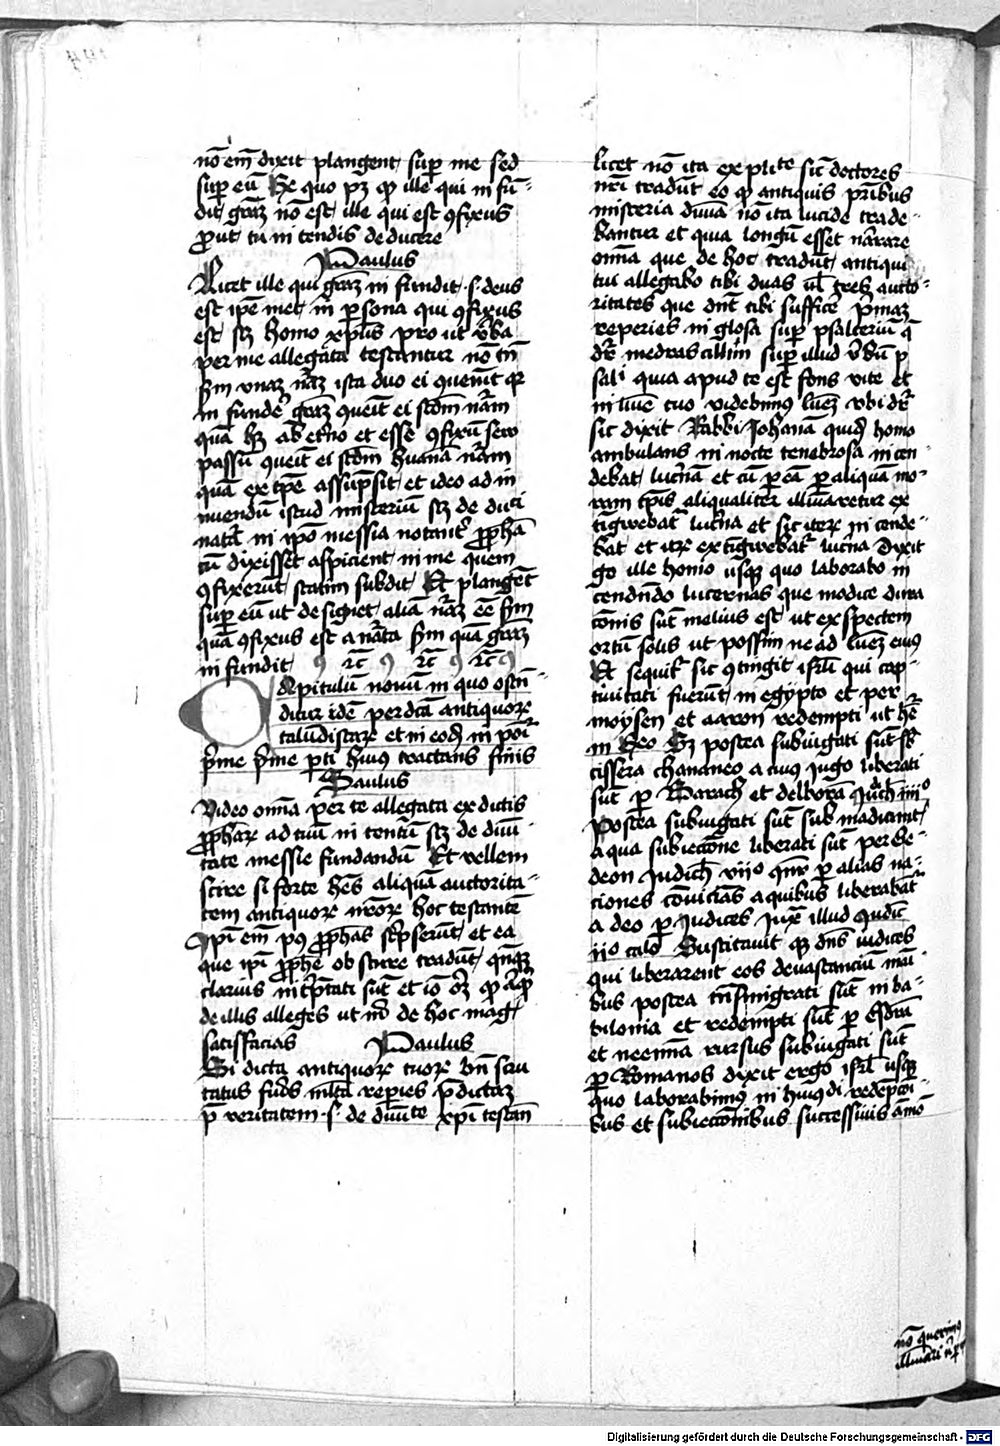 nō em̄ dixit plangent sup me sed
sup eū Se quo pꝫ ꝙ ille qui in fū-
dit grāꝫ nō est ille qui est ꝯfixus
ꝓut tu in tendis de ducere
Paulus
Licet ille qui grāꝫ in fundit .s. deus
est ip̄e met in ꝑsona qui ꝯfixus
est sꝫ homo xp̄us pro ut v̄ba
per me allegata testantur nō tn̄
ẜm vnaꝫ nāꝫ ista duo ei ꝯueniūt qꝛ
in funde grāꝫ ꝯueīt ei scd̄m nām
quā hꝫ ab et̄no et esse ꝯfixū seu
passū ꝯueīt ei scd̄m huānā nām
quā ex tp̄e assūpsit et ideo ad in
nuendū istud misteriū sꝫ de duci
natꝭ in ip̄o messia notantꝭ ꝓphā
cū dixisset aspicient in me quem
ꝯfixerūt statim subdit Et plangēt
sup eū ut de sig̅iet aliā nāꝫ eē ẜm
quā ꝯfixus est a nāta ẜm quā grāꝫ
in fundit ꝯ ꝛc̄ ꝯ ꝛc̄ ꝯ ꝛc̄ ꝯ
Capitulū nonū in quo ostn̄-
ditur idē per dc̄a antiquoꝝ
taludistaꝝ et in eod in poīt
p̄me p̄me ꝑti huius tractatus finis
Saulus
Video om̄ia per te allegata ex dictis
ꝓphaꝝ ad tuū in tentū sꝫ de diui-
tate messie fundandū Et vellem
scire si forte hēs aliquā auctorita-
tem antiquoꝝ nr̄oꝝ hoc testantē
Ip̄i em̄ pꝰ ꝓphās sc̄pserūt et ea
que ip̄i ꝓphē ob scure tradūt qn̄qꝫ
clarius int̄p̄tati sūt et iō oꝫ ꝙ aliꝙ
de illis alleges ut m̄ de hoc magꝭ
satisfacias Paulus
Si dicta antiquoꝝ tuoꝝ bn̄ scru
tatus fūis ml̄ta reperies p̄dictaꝫ
ꝑ veritatem .s. de diuīte xp̄i testan̄
licet nō ita explīte sic̄ doctores
nr̄i tradūt eo ꝙ antiquis pr̄ibus
misteria diuīa nō ita lucide trade-
bantur et quia longū esset nārare
om̄ia que de hoc tradūt antiqui
tui allegabo tibi duas ul̄ tres aucto-
ritates que dn̄t tibi sufficē p̄maꝫ
reperies in glosa sup psalteriū q̄
dr̄ medras cillim sup illud v̄bū p
sali quia apud te est fons vite et
in luīe tuo videbimꝰ lueꝫ vbi dr̄
sic dixit Rabbi Johanā quidꝫ homo
ambulans in nocte tenebrosa in cen-
debat luc̄nā et cū ꝑ eā ꝑ aliquā mo-
ram tp̄is aliqualiter illuīaretur ex
tīgwebatꝭ luc̄na et sic iteꝝ in cende-
bat et itꝝ ex tīgwebatꝭ luc̄na dixit
go ille homo usqꝫ quo laborabo in
cendn̄do lucernas que modice dura
cōnis sūt melius est ut exspectem
ortū solis ut possim ire ad lueꝫ eius
Et sequitꝭ sic ꝯtingit isrl̄ qui cap-
tiuitati fuerūt in egypto et per
moysen et aaron redempti ut hr̄
in heo Sꝫ postea subiugati sūt sb
cissera chananeo a cuius iugo liberati
sūt ꝑ Barach et delborā Judiē iiiiº
Postea subiugati sūt sub madianit
a qua subiectōne liberati sūt per Ge-
deon Judicū viijº qnr̄ ꝑ alias na-
ciones cōuicinas a quibus liberabāt
a deo ꝑ Judices Juxͣ illud Judic̄
ijº caº Suscitauit qꝫ dn̄s iudices
qui liberarent eos deuastanciū māi-
bus postea trn̄smigrati sūt in ba-
bilonia et redempti sūt ꝑ Esdrā
et neemiā rursus subiugati sūt
ꝑ Romanos dixit ergo isrl̄ usqꝫ
quo laborabimꝰ in huiusdi redēpcōi
bus et subiectōnibus successiuis āmō
nō querimꝰ
illuīari n̄ ꝑ
Digitalisierung gefördert durch die Deutsche Forschungsgemeinschaft - DFG